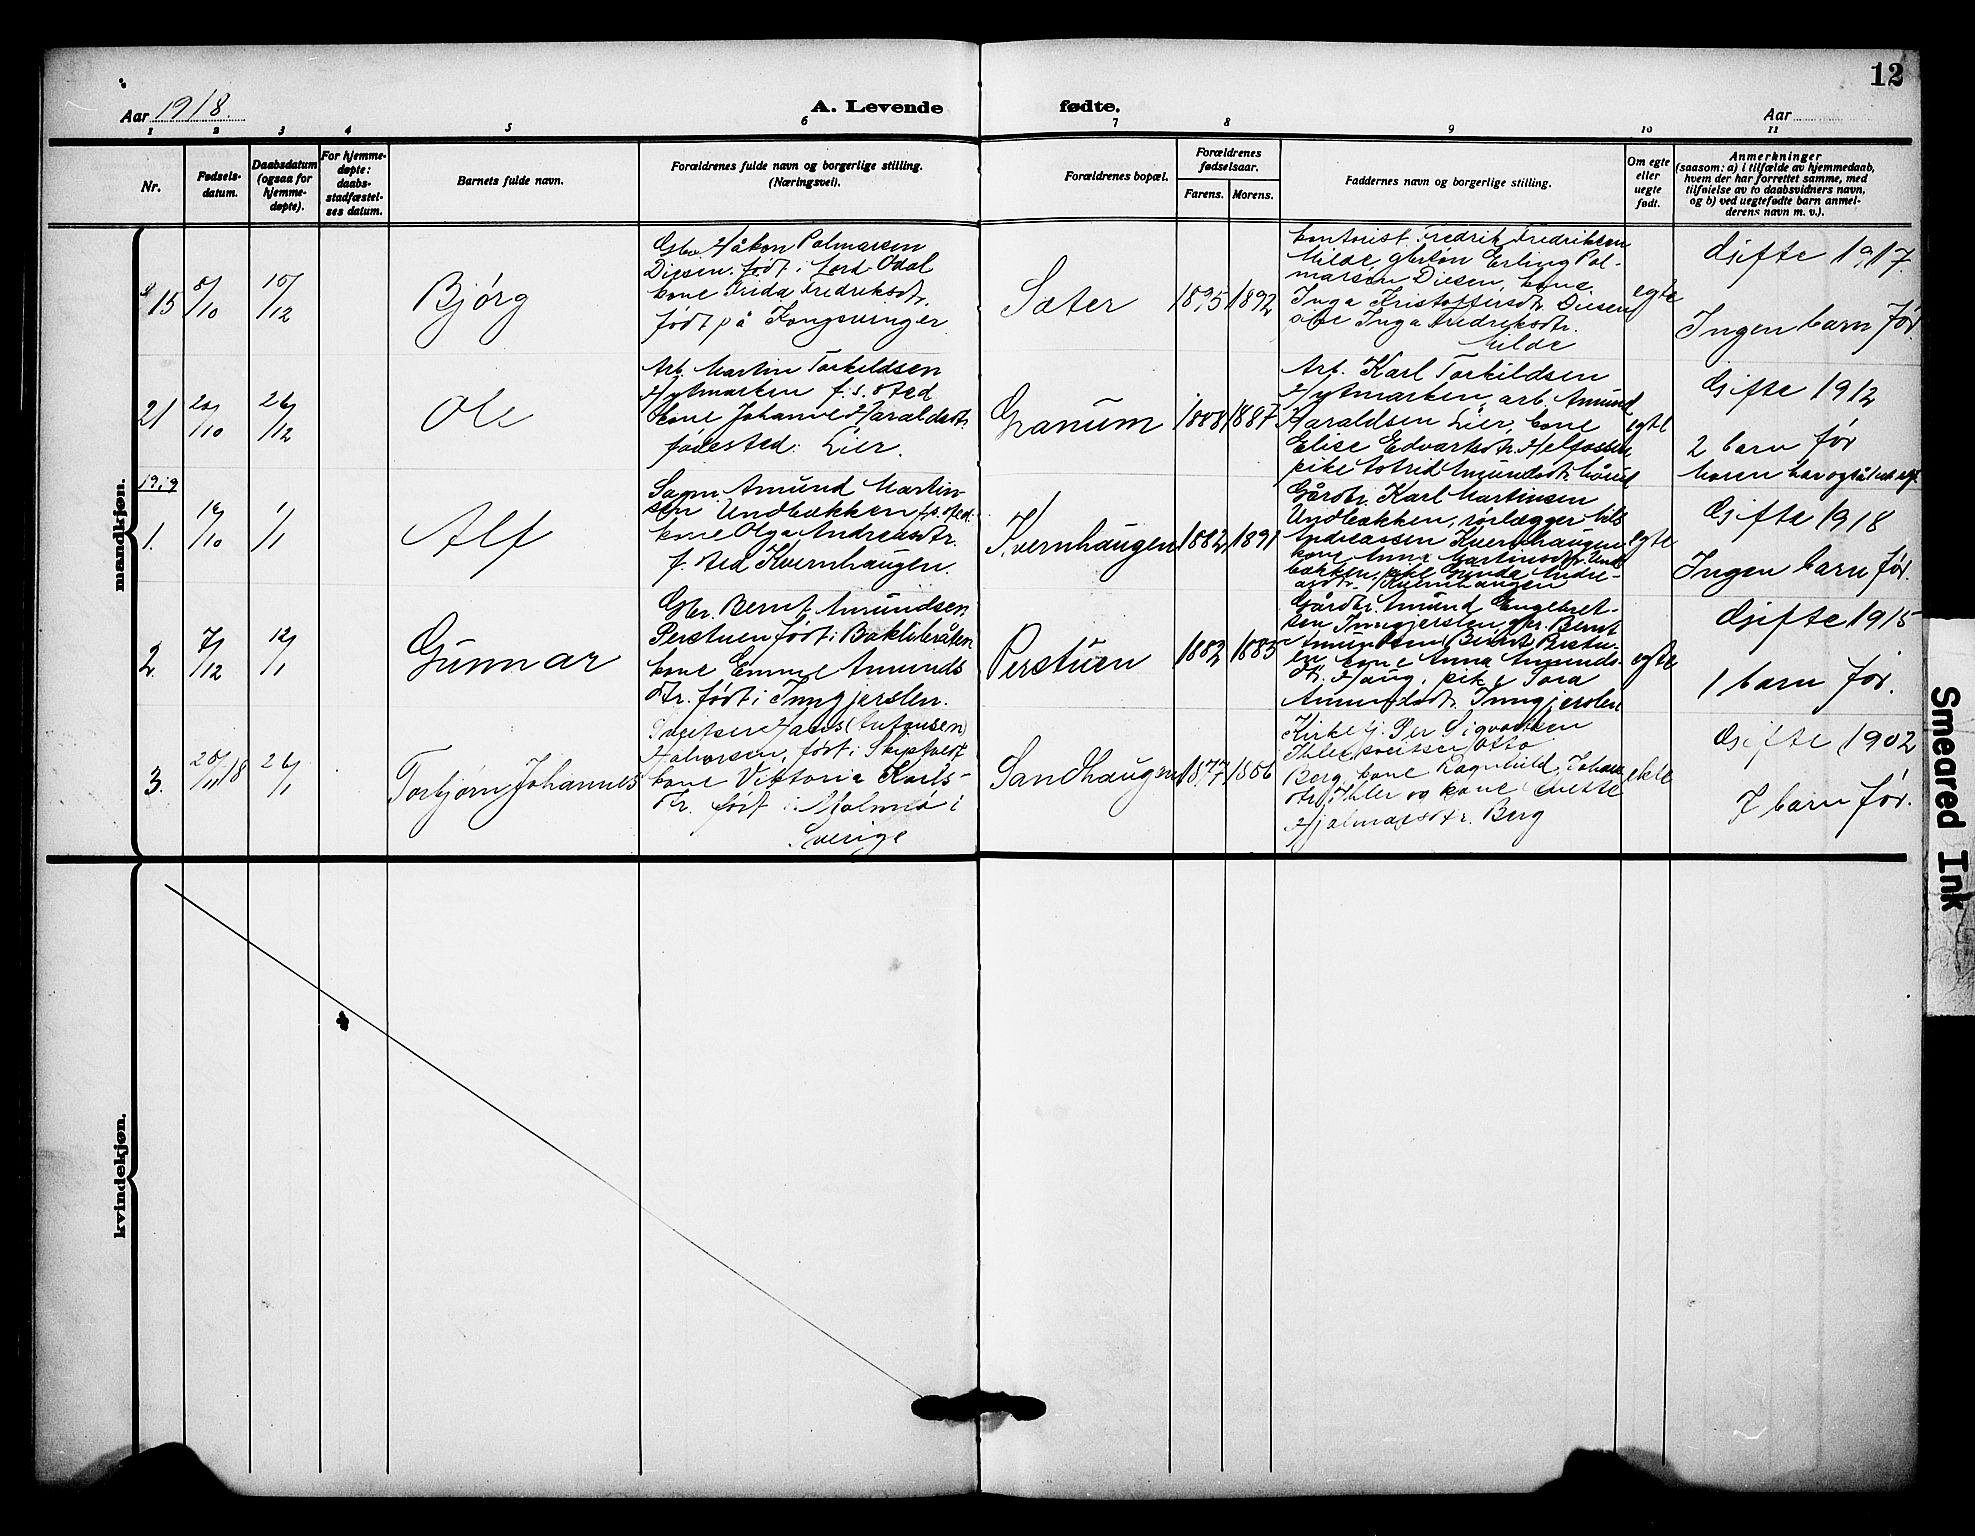 12
Aar 1918.
A. Levende fødte.
Aar
1 2 3 4 5 6 7 8 9 10 11
Nr.
Fødsels-
datum.
Daabsdatum
(ogsaa for
hjemme-
døpte).
For hjemme-
døpte:
daabs-
stadfæstel-
ses datum.
Barnets fulde navn.
Forældrenes fulde navn og borgerlige stilling.
(Næringsvei).
Forældrenes bopæl.
Forældrenes
fødselsaar.
Farens. Morens.
Faddernes navn og borgerlige stilling.
Om egte
eller
uegte
født.
Anmerkninger
(saasom: a) i tilfælde av hjemmedaab,
hvem der har forrettet samme, med
tilføielse av to daabsvidners navn,
og b) ved uegtefødte barn anmel-
derens navn m. v.).
mandkjøn.
15
8/10
10/12
Bjørg
Gbr. Håkon Palmarsen
Diesen. født i Nord Odal
kone Frida Fredriksdtr.
født på Kongsvinger
Sæter
1895 1892
kontorist Fredrik Fredriksen
Milde, Erling Pal-
marsen Diesen, kone
Inga Kristoffersdtr. Diesen
Inga Fredriksdtr.
Milde
egte
Gifte 1917.
Ingen barn før.
21
20/10
26/12
Ole
Arb. Martin Torkildsen
Hytmarken f. s. sted
kone Johanne Haraldsdtr.
fødested: Lier.
Granum
1888 1887
Arb. Karl Torkildsen
Hytmarken, arb. Amund
Haraldsen Lier, kone
Elise Edvartsdtr. Melfossen
pike Astrid Amundsdtr.
egte
Gifte 1912
2 barn før
1919
1.
16/10
1/1
Alf
Sagm. Amund Martin-
sen Undbækken f. s. sted.
kone Olga Andreasdtr.
f. sted Kvernhaugen.
Kvernhaugen
1882 1891
Gårdbr. Karl Martinsen
Undbækken, rørlægger Nils
Andreassen Kvernhaugen
kone Anna Martinsdtr. Und-
bækken, pike Gunda Andre-
asdtr. Kvernhaugen
egte
Gifte 1918
Ingen barn før.
2.
7/12
12/1
Gunnar
Gbr. Bernt Amundsen
Perstuen født i Baklibråten
kone Emma Amunds
dtr. født i Inngjerslen.
Perstuen
1882 1883
Gårdbr. Amund Engebret-
sen Inngjerslen, gbr. Bernt
Amundsen Perstu-
en, kone Anna Amunds-
dtr. Haug, pike Tora
Amundsdtr. Inngjerslen
egte
Gifte 1915
1 barn før.
3.
25/11 18
26/1
Torbjørn Johannes
Sveitser Hans (Antonsen)
Halvorsen, født i Skiptvedt
kone Viktoria Karls-
dtr. født i Malmø i
Sverige
Sandhaugen
1877 1886
Kirkesj. Per Sigvartsen
Ihler, sveitser Otto
Berg, kone Ragnhild Johans
dtr. Ihler og kone Anette
Hjalmarsdtr. Berg
ekte
Gifte 1902
7 barn før.
kvindekjøn.
Smeared Ink